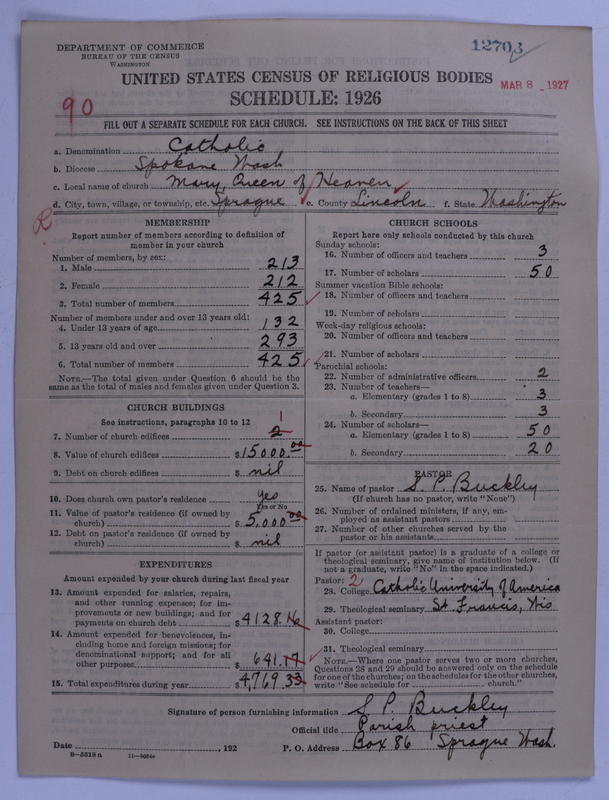 DEPARTMENT OF COMMERCE
BUREAU OF THE CENSUS
WASHINGTON
12703
UNITED STATES CENSUS OF RELIGIOUS BODIES
MAR 8 - 1927
SCHEDULE: 1926
90
FILL OUT A SEPARATE SCHEDULE FOR EACH CHURCH. SEE INSTRUCTIONS ON THE BACK OF THIS SHEET
a. Denomination Catholic
b. Diocese Spokane Wash
c. Local name of church Mary, Queen of Heaven
d. City, town, village, or township, etc. Sprague e. County Lincoln f. State Washington
MEMBERSHIP
Report number of members according to definition of
member in your church
Number of members, by sex:
1. Male 213
2. Female 212
3. Total number of members 425
Number of members under and over 13 years old:
4. Under 13 years of age 132
5. 13 years old and over 293
6. Total number of members 425
NOTE.—The total given under Question 6 should be the
same as the total of males and females given under Question 3.
CHURCH BUILDINGS
See instructions, paragraphs 10 to 12
1
7. Number of church edifices 2
8. Value of church edifices $15000.00
9. Debt on church edifices $ nil
10. Does church own pastor's residence yes
Yes or No
11. Value of pastor's residence (if owned by
church) $5,000.00
12. Debt on pastor's residence (if owned by
church) $ nil
EXPENDITURES
Amount expended by your church during last fiscal year
13. Amount expended for salaries, repairs,
and other running expenses; for im-
provements or new buildings; and for
payments on church debt $4128.16
14. Amount expended for benevolences, in-
cluding home and foreign missions; for
denominational support; and for all
other purposes $ 641.17
15. Total expenditures during year $4,769.33
CHURCH SCHOOLS
Report here only schools conducted by this church
Sunday schools:
16. Number of officers and teachers 3
17. Number of scholars 50
Summer vacation Bible schools:
18. Number of officers and teachers
19. Number of scholars
Week-day religious schools:
20. Number of officers and teachers
21. Number of scholars
Parochial schools:
22. Number of administrative officers 2
23. Number of teachers—
a. Elementary (grades 1 to 8) 3
b. Secondary 3
24. Number of scholars—
a. Elementary (grades 1 to 8) 50
b. Secondary 20
PASTOR
25. Name of pastor S. P. Buckley
(If church has no pastor, write "None")
26. Number of ordained ministers, if any, em-
ployed as assistant pastors
27. Number of other churches served by the
pastor or his assistants
If pastor (or assistant pastor) is a graduate of a college or
theological seminary, give name of institution below. (If
not a graduate, write "No" in the space indicated.)
Pastor: 2
28. College Catholic University of America
29. Theological seminary St. Francis, Wis
Assistant pastor:
30. College
31. Theological seminary
NOTE.—Where one pastor serves two or more churches,
Questions 28 and 29 should be answered only on the schedule
for one of the churches; on the schedules for the other churches,
write "See schedule for church."
Signature of person furnishing information S. P. Buckley
Official title Parish priest
Date , 192 P. O. Address Box 86 Sprague Wash.